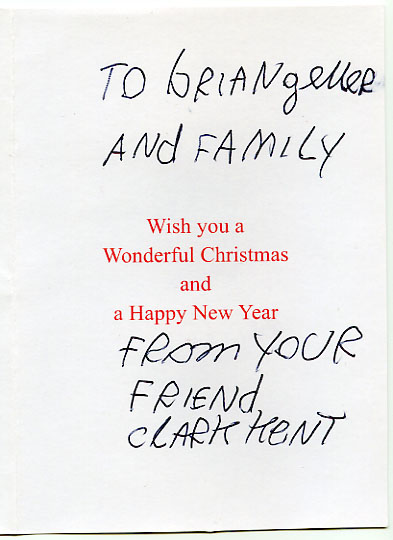 TO BRIAN geller
AND FAMILY
Wish you a
Wonderful Christmas
and
a Happy New Year
FROM YOUR
FRIEND
CLARK KENT